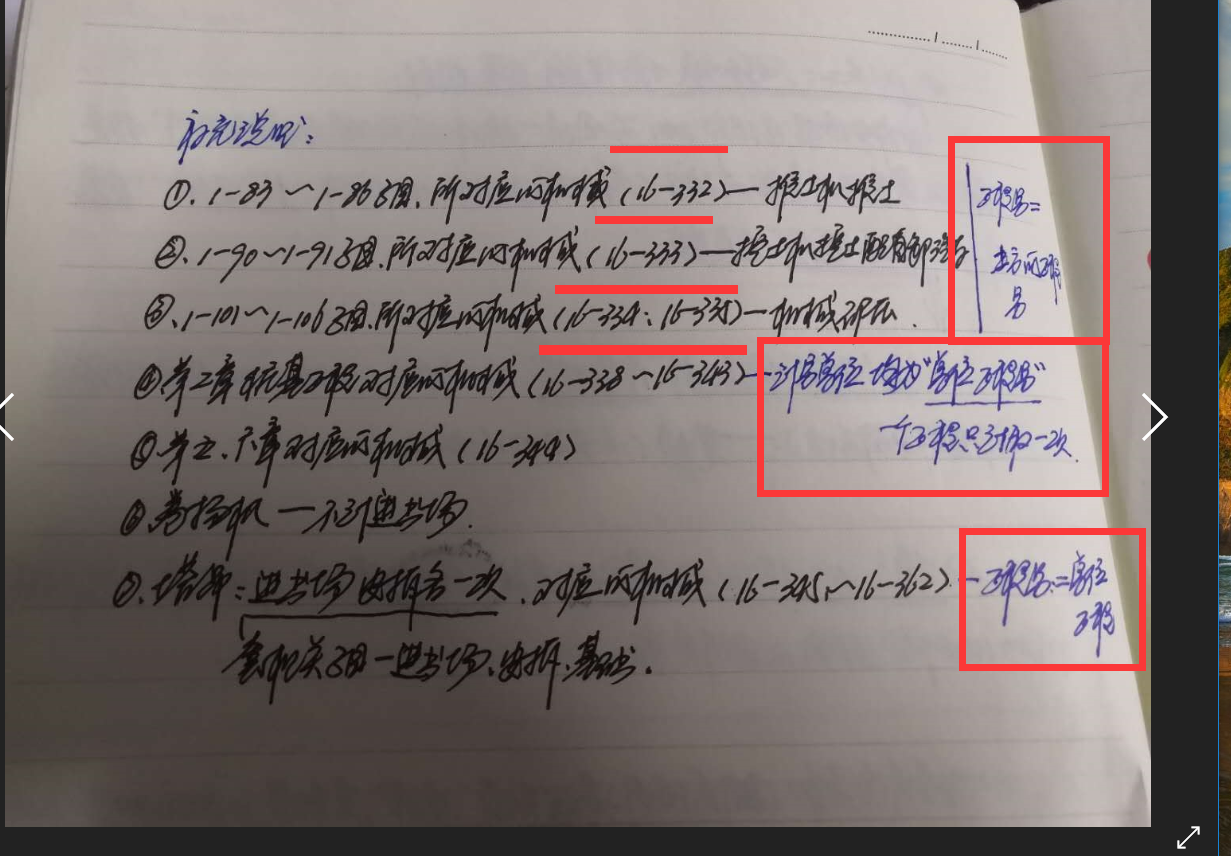 补充说明:
①、1-83~1-86子目、所对应的机械(16-332)—推土机推土
工程量=
②、1-90~1-91子目、所对应的机械(16-333)—挖土机挖土配自卸汽车
土方的工程量
③、1-101~1-106子目、所对应的机械(16-334、16-335)—机械碾压.
④、第二章桩基工程对应的机械(16-338~16-343)—计量单位均为"单位工程量"
一个工程只计取一次.
⑤、第五、六章对应的机械(16-344)
⑥、卷扬机—不计进出场.
⑦、塔吊:进出场安拆各一次、对应的机械(16-345~16-362)—工程量:=单位工程
套相关子目—进出场、安拆、基础.